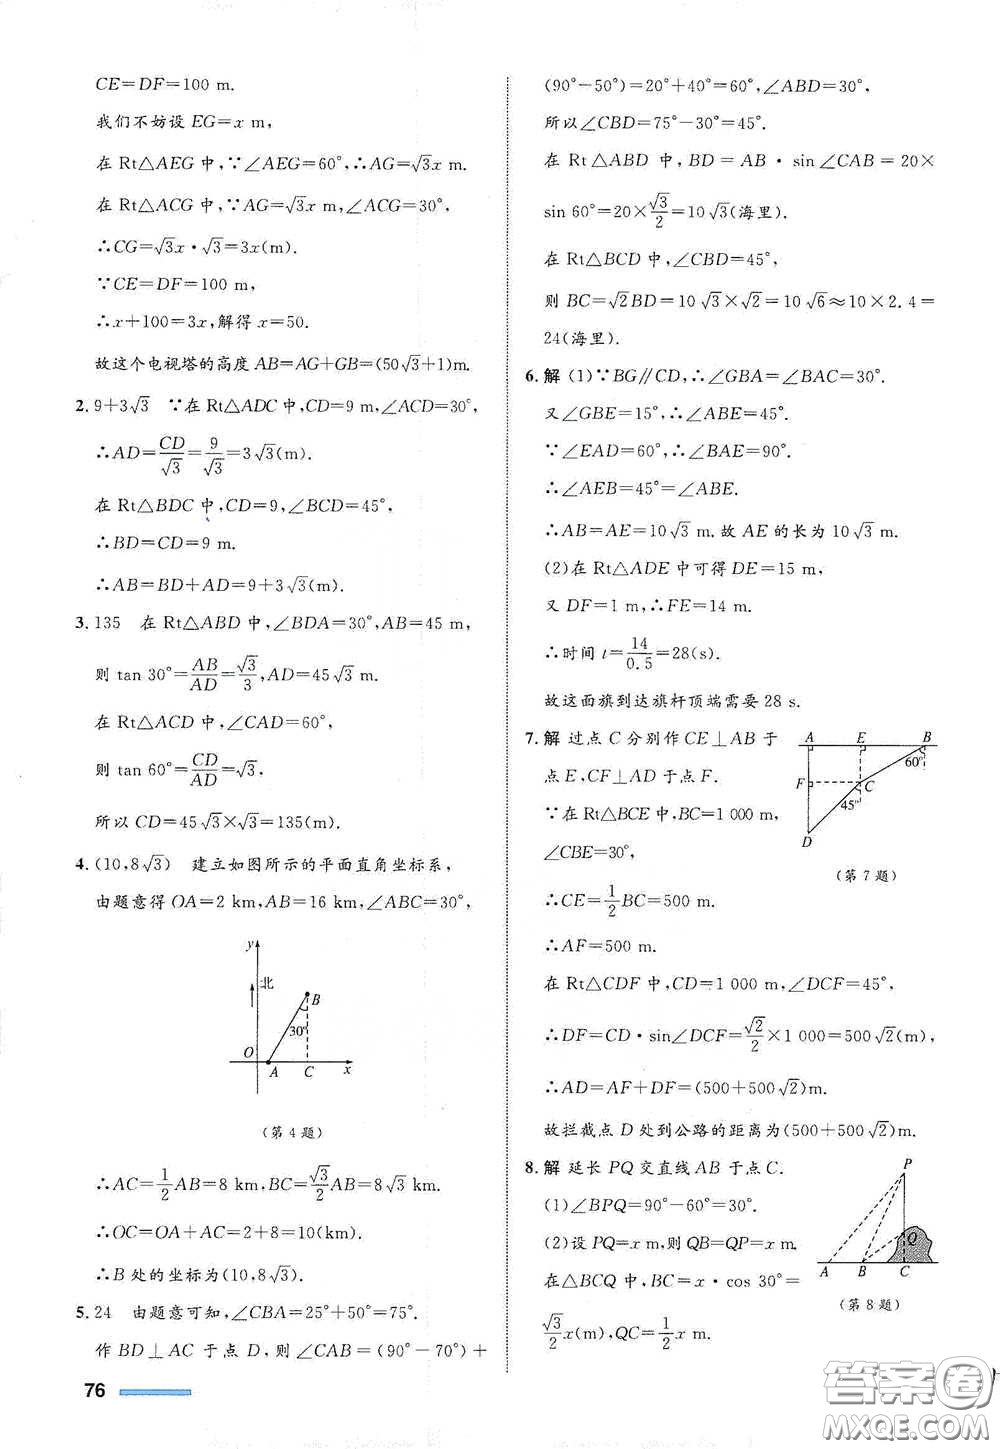 CE=DF=100 m.
我们不妨设 EG=x m,
在 Rt△AEG 中,∵∠AEG=60°,∴AG=√3x m.
在 Rt△ACG 中,∵AG=√3x m,∠ACG=30°,
∴CG=√3x·√3=3x(m).
∵CE=DF=100 m,
∴x+100=3x,解得 x=50.
故这个电视塔的高度 AB=AG+GB=(50√3+1)m.
2. 9+3√3 ∵在 Rt△ADC 中,CD=9 m,∠ACD=30°,
∴AD=CD/√3=9/√3=3√3(m).
在 Rt△BDC 中,CD=9,∠BCD=45°,
∴BD=CD=9 m.
∴AB=BD+AD=9+3√3(m).
3. 135 在 Rt△ABD 中,∠BDA=30°,AB=45 m,
则 tan 30°=AB/AD=√3/3,AD=45√3 m.
在 Rt△ACD 中,∠CAD=60°,
则 tan 60°=CD/AD=√3.
所以 CD=45√3×√3=135(m).
4. (10,8√3) 建立如图所示的平面直角坐标系,
由题意得 OA=2 km,AB=16 km,∠ABC=30°,
y
北
B
30°
O
A C x
(第 4 题)
∴AC=1/2AB=8 km,BC=√3/2AB=8√3 km.
∴OC=OA+AC=2+8=10(km).
∴B 处的坐标为(10,8√3).
5. 24 由题意可知,∠CBA=25°+50°=75°.
作 BD⊥AC 于点 D,则∠CAB=(90°-70°)+
76
(90°-50°)=20°+40°=60°,∠ABD=30°,
所以∠CBD=75°-30°=45°.
在 Rt△ABD 中,BD=AB·sin∠CAB=20×
sin 60°=20×√3/2=10√3(海里).
在 Rt△BCD 中,∠CBD=45°,
则 BC=√2BD=10√3×√2=10√6≈10×2.4=
24(海里).
6. 解 (1)∵BG∥CD,∴∠GBA=∠BAC=30°.
又∠GBE=15°,∴∠ABE=45°.
∵∠EAD=60°,∴∠BAE=90°.
∴∠AEB=45°=∠ABE.
∴AB=AE=10√3 m.故 AE 的长为 10√3 m.
(2)在 Rt△ADE 中可得 DE=15 m,
又 DF=1 m,∴FE=14 m.
∴时间 t=14/0.5=28(s).
故这面旗到达旗杆顶端需要 28 s.
7. 解 过点 C 分别作 CE⊥AB 于
点 E,CF⊥AD 于点 F.
∵在 Rt△BCE 中,BC=1 000 m,
∠CBE=30°,
∴CE=1/2BC=500 m.
∴AF=500 m.
A E B
60°
F C
45°
D
(第 7 题)
在 Rt△CDF 中,CD=1 000 m,∠DCF=45°,
∴DF=CD·sin∠DCF=√2/2×1 000=500√2(m),
∴AD=AF+DF=(500+500√2)m.
故拦截点 D 处到公路的距离为(500+500√2)m.
8. 解 延长 PQ 交直线 AB 于点 C.
(1)∠BPQ=90°-60°=30°.
(2)设 PQ=x m,则 QB=QP=x m.
在△BCQ 中,BC=x·cos 30°=
√3/2x(m),QC=1/2x m.
P
Q
A B C
(第 8 题)
答案圈
MXQE.COM